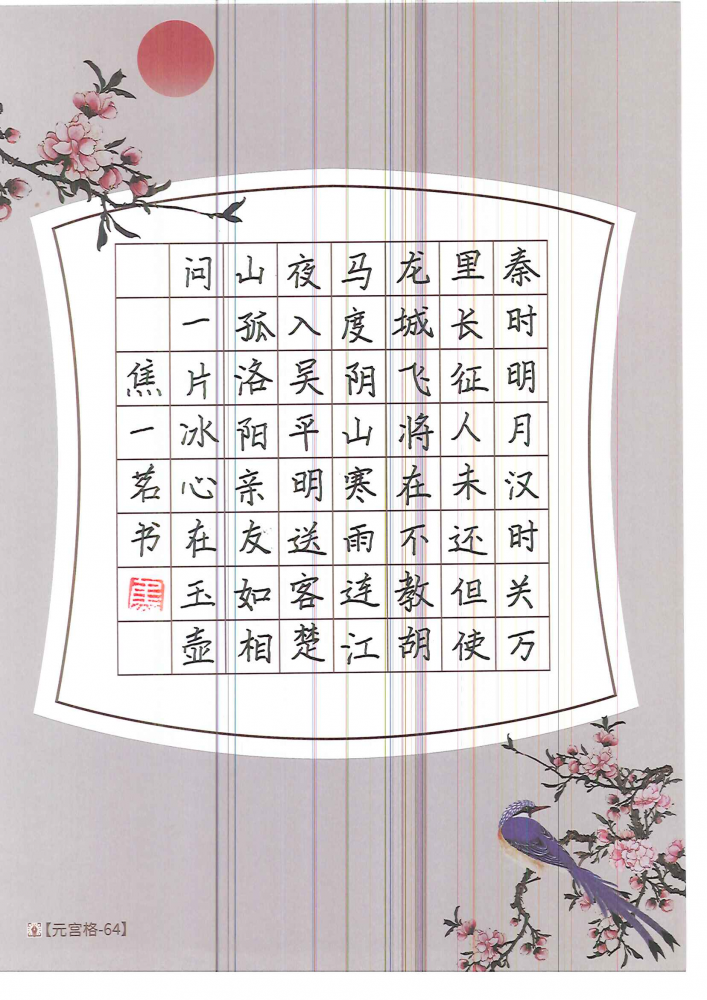 秦时明月汉时关万
里长征人未还但使
龙城飞将在不教胡
马度阴山寒雨连江
夜入吴平明送客楚
山孤洛阳亲友如相
问一片冰心在玉壶
焦一茗书
【元宫格-64】